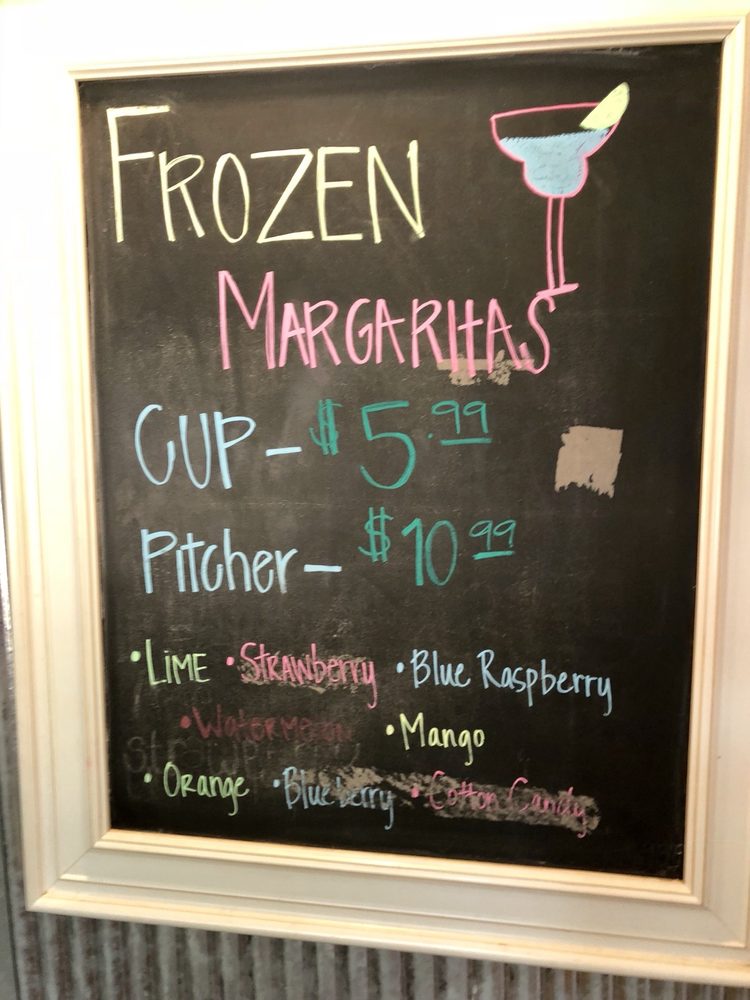 FROZEN
MARGARITAS
CUP - $5.99
Pitcher - $10 99
• LIME • Strawberry • Blue Raspberry
• Watermelon • Mango
• Orange • Blueberry • Cotton Candy